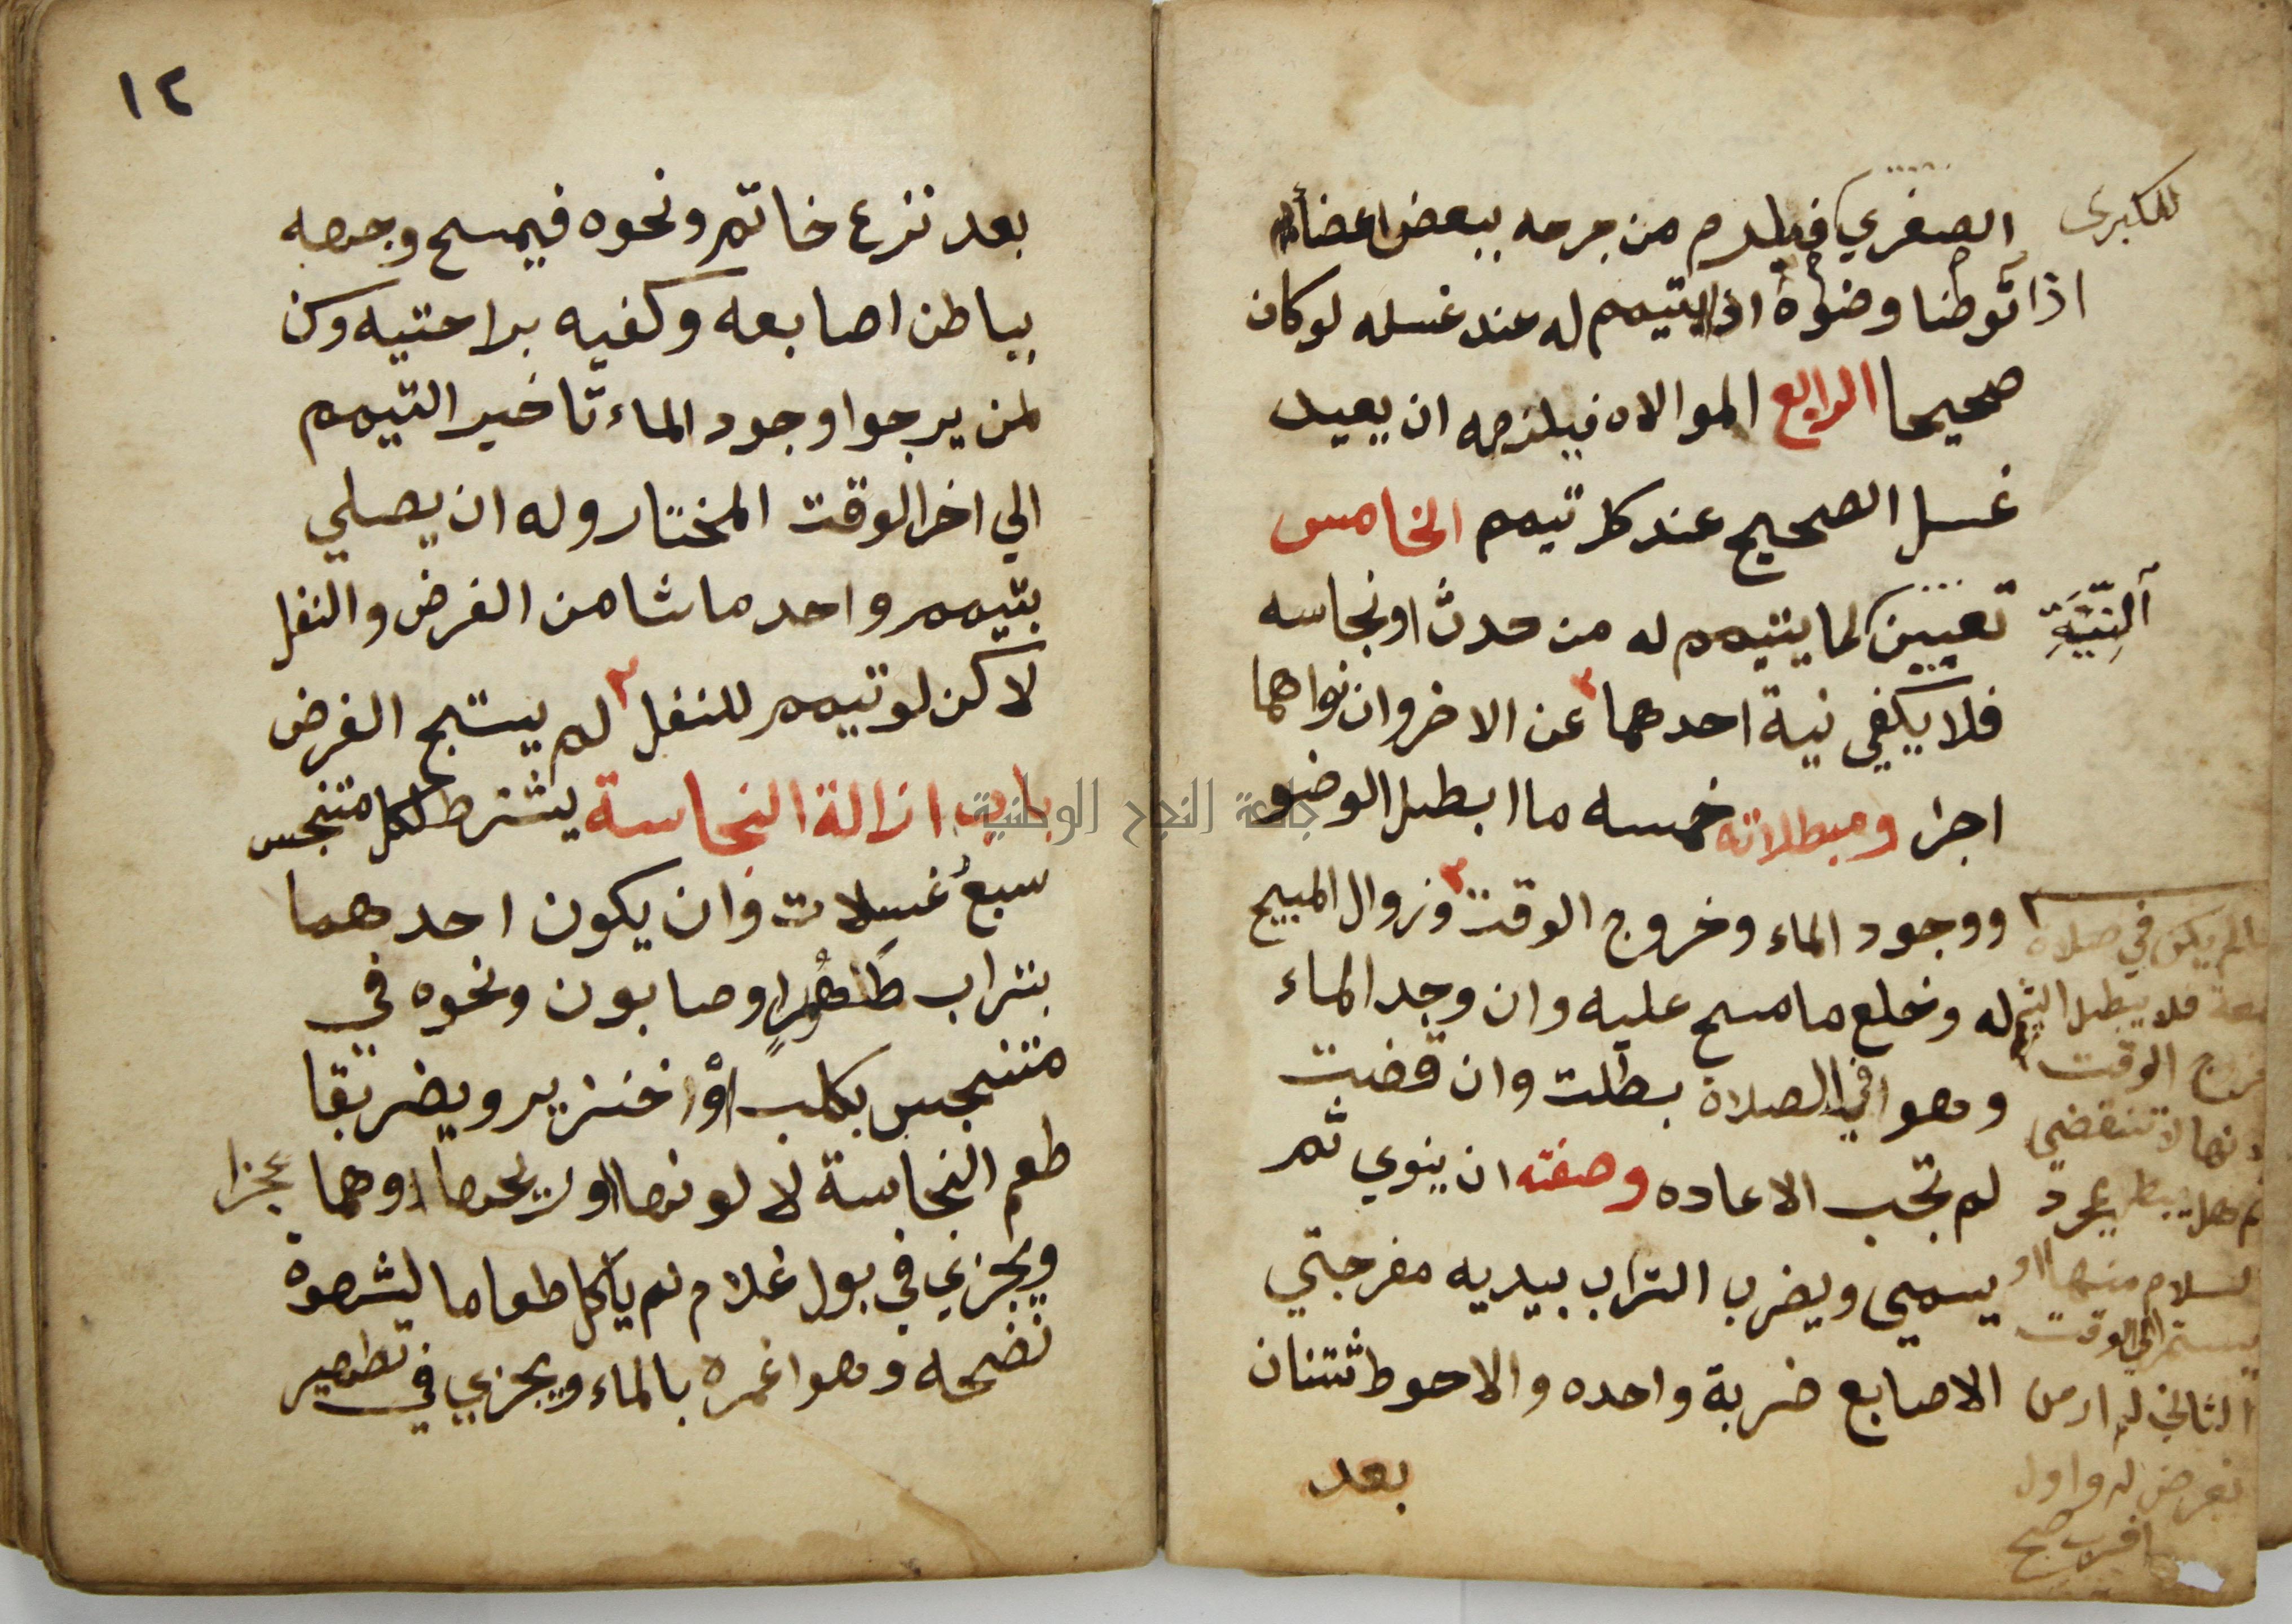 للكبرى
الصغرى فيلزم من جرحه ببعض اعضائه
اذا توضا وضوءا اذا التيمم له عند غسله لو كان
صحيحا الرابع الموالاه فيلزمه ان يعيد
غسل الصحيح عند كل تيمم الخامس
اَلنِّيَّةِ
تعيين لما يتيمم له من حدث او نجاسه
فلا يكفي نية احدهما عن الاخر وان نواهما
اجزا ومبطلاته خمسه ما ابطل الوضو
ووجود الماء وخروج الوقت وزوال المبيح
له وخلع ما مسح عليه وان وجد الماء
وهوا في الصلاة بطلت وان قضيت
لم تجب الاعاده وصفته ان ينوي ثم
يسمي ويضرب التراب بيديه مفرجتي
الاصابع ضربة واحده والاحوط ثنتان
بعد
مالم يكن في صلاة
فلا يبطل التيمم
خروج الوقت
لانها لا تنقضي
السلام منها او
يستمر الى الوقت
الثاني
١٢
بعد نزع خاتم ونحوه فيمسح وجهه
بباطن اصابعه وكفيه براحتيه وسن
لمن يرجوا وجود الماء تاخير التيمم
الي اخر الوقت المختار وله ان يصلي
بتيمم واحد ما شا من الفرض والنفل
لاكن لو تيمم للنفل لم يستبح الفرض
باب ازالة النجاسة يشترط لكل متنجس
سبعُ غسلات وان يكون احدهما
بتراب طَهُورٍ او صابون ونحوه في
متنجس بكلب اوْ خنزير ويضر بقا
طعم النجاسة لا لونها او ريحها او هما عجزا
ويجزي في بول غلام لم ياكل طعاما لشهوة
نضحه وهوا غمره بالماء ويجزي في تطهير
جامعة النجاح الوطنية